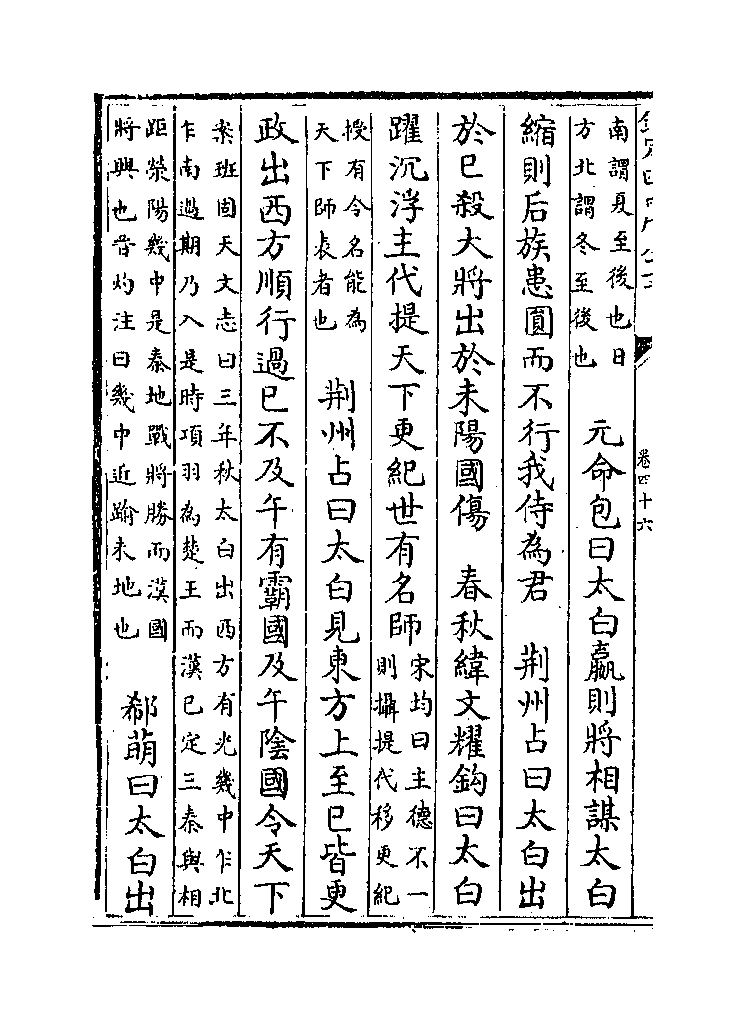 卷四十六
南謂夏至後也日
方北謂冬至後也
元命包曰太白贏則將相謀太白
縮則后族患圓而不行我侍為君　荆州占曰太白出
於巳殺大將出於未陽國傷　春秋緯文耀鈎曰太白
躍沉浮主代提天下更紀世有名師
宋均曰主德不一
則攝提代移更紀
授有令名能為
天下師表者也
荆州占曰太白見東方上至巳皆更
政出西方順行過巳不及午有霸國及午陰國令天下
案班固天文志曰三年秋太白出西方有光幾中乍北
乍南過期乃入是時項羽為楚王而漢已定三秦與相
距滎陽幾中是秦地戰將勝而漢國
將興也晉灼注曰幾中近踰未地也
郗萌曰太白出